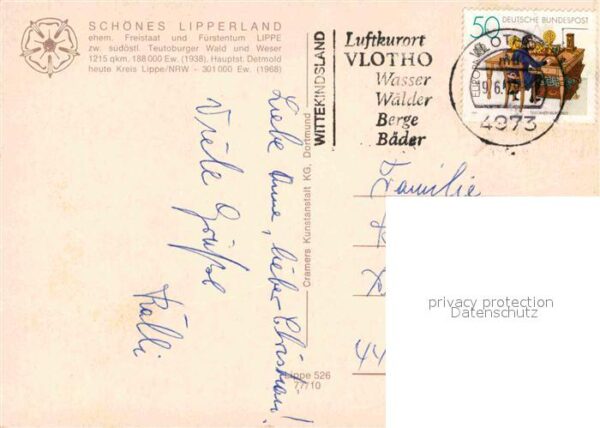 SCHÖNES LIPPERLAND
ehem. Freistaat und Fürstentum LIPPE
zw. südöstl. Teutoburger Wald und Weser
1215 qkm. 188 000 Ew. (1938), Hauptst. Detmold
heute Kreis Lippe/NRW - 301 000 Ew. (1968)
Liebe Anne, lieber Christian!
Viele Grüße
Kalli
Cramers Kunstanstalt KG, Dortmund
Lippe 526
77/10
WITTEKINDSLAND
Luftkurort
VLOTHO
Wasser
Wälder
Berge
Bäder
50 DEUTSCHE BUNDESPOST
4973
Familie
44
privacy protection
Datenschutz